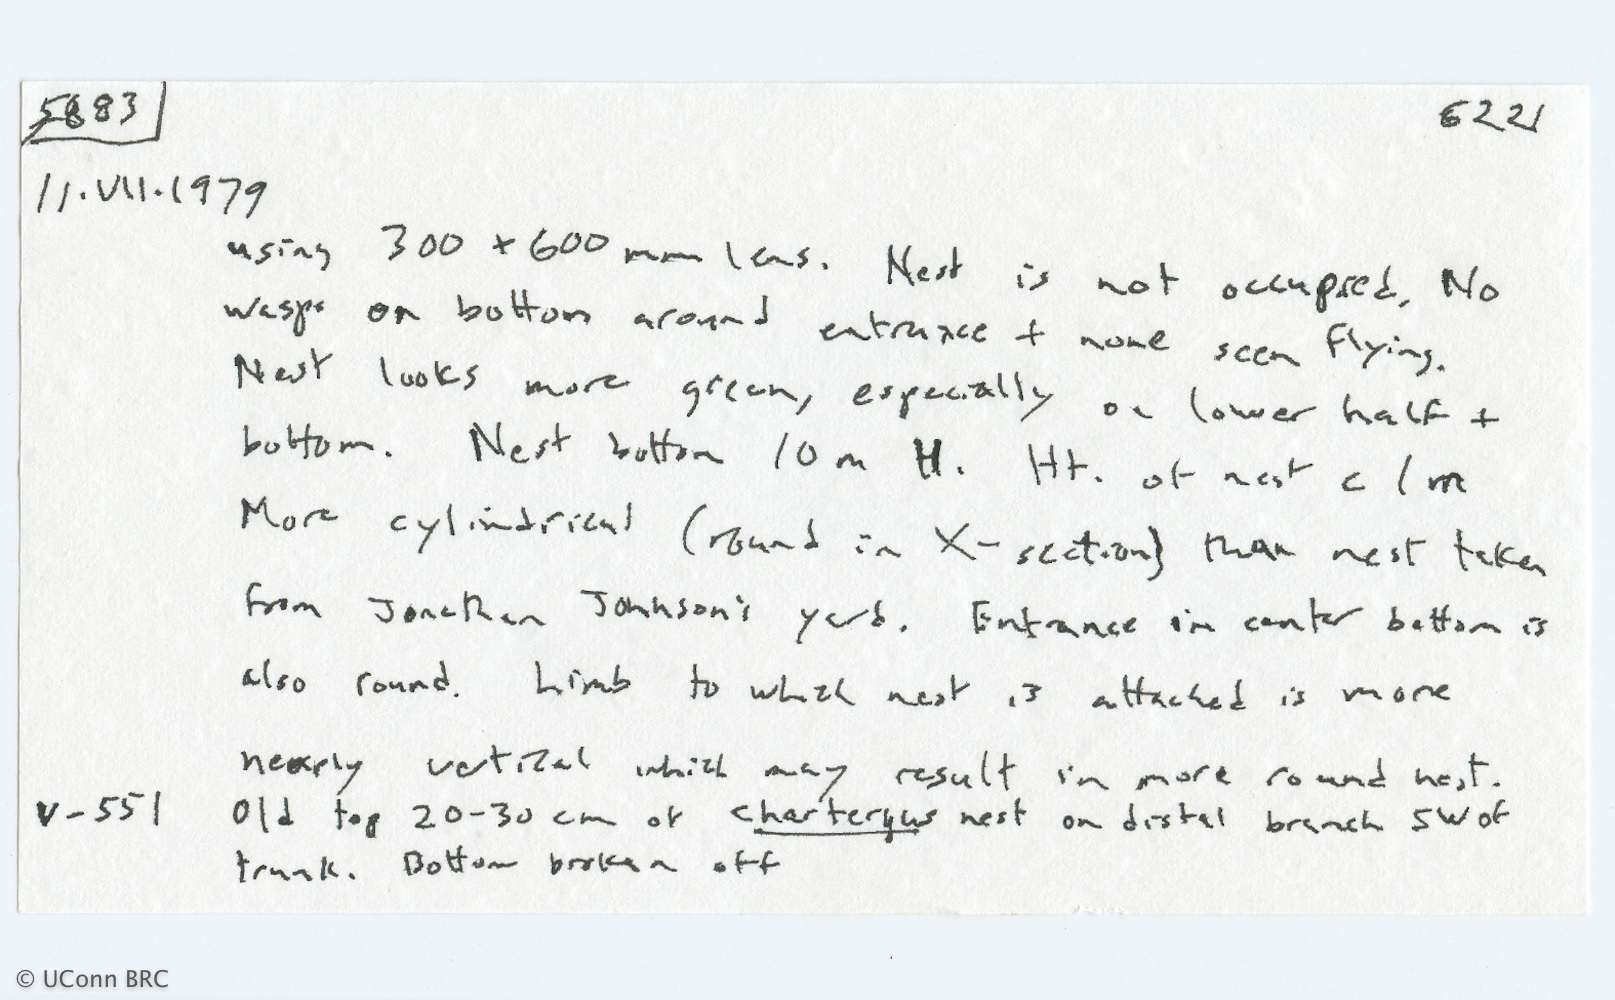 5883 6221
11.VII.1979
using 300 + 600 mm lens. Nest is not occupied. No
wasps on bottom around entrance + none seen flying.
Nest looks more green, especially on lower half +
bottom. Nest bottom 10 m H. Ht. of nest c 1 m
More cylindrical (round in X-section) than nest taken
from Jonathan Johnson's yard. Entrance in center bottom is
also round. Limb to which nest is attached is more
nearly vertical which may result in more round nest.
V-551 Old top 20-30 cm of Chartergus nest on distal branch SW of
trunk. Bottom broken off
© UConn BRC